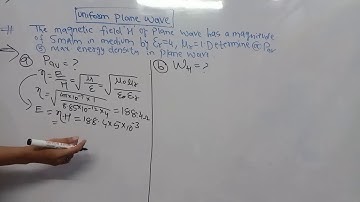 Uniform Plane Wave
The magnetic field H of plane wave has a magnitude
of 5mA/m in medium by εr=4, μr=1. Determine ⓐ Pav
ⓑ max energy density in plane wave
ⓐ Pav = ?
η = E/H = √μ/ε = √μ0μr/ε0εr
η = √4π×10⁻⁷×1/8.85×10⁻¹²×4 = 188.4Ω
E = η.H = 188.4×5×10⁻³
ⓑ WH = ?